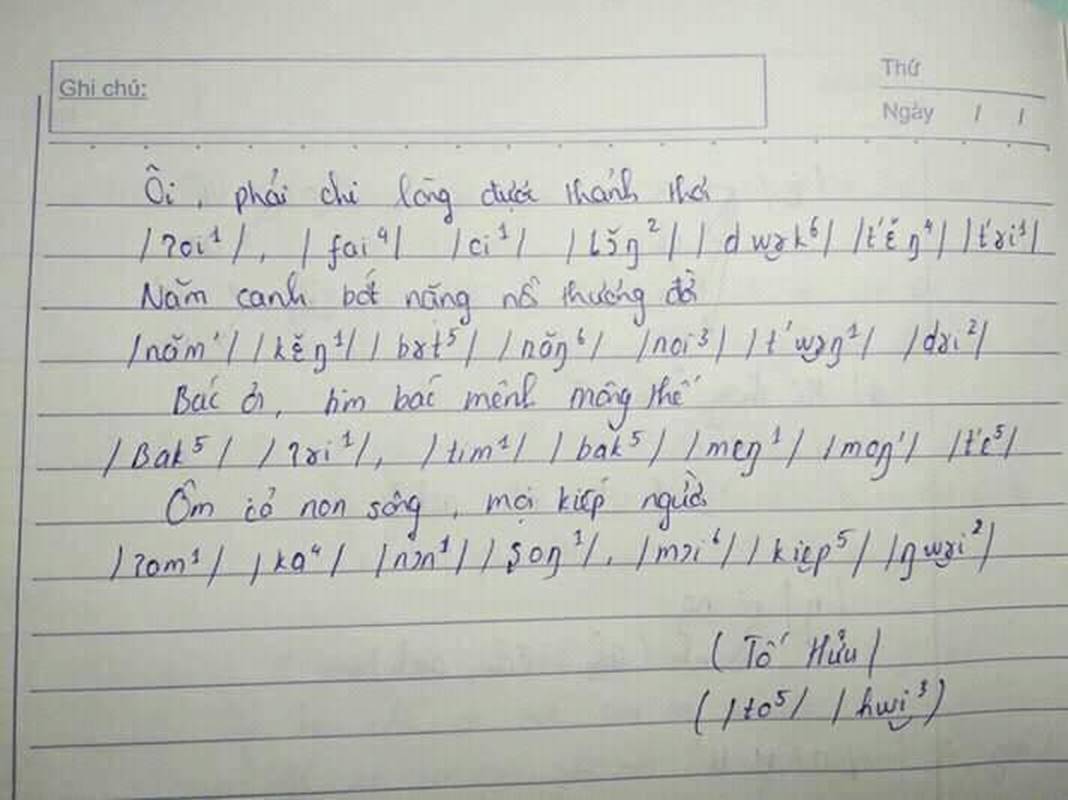 Ghi chú:
Thứ
Ngày / /
Ôi, phải chi lòng được thảnh thơi
/ʔoi¹/, /fai⁴/ /ci¹/ /lɔ̆ŋ²/ /dɯɤk⁶/ /t'ɛ̆ŋ⁴/ /t'ɤi¹/
Năm canh bớt nặng nỗi thương đời
/năm¹/ /kɛ̆ŋ¹/ /bɤt⁵/ /năŋ⁶/ /noi³/ /t'ɯɤŋ¹/ /dɤi²/
Bác ơi, tim bác mênh mông thế
/Bak⁵/ /ʔɤi¹/, /tim¹/ /bak⁵/ /meŋ¹/ /moŋ¹/ /t'e⁵/
Ôm cả non sông, mọi kiếp người
/ʔom¹/ /ka⁴/ /nɔn¹/ /ʂoŋ¹/, /mɔi⁶/ /ki̮ep⁵/ /ŋɯɤi²/
(Tố Hữu)
(/to⁵/ /hɯi̮³)